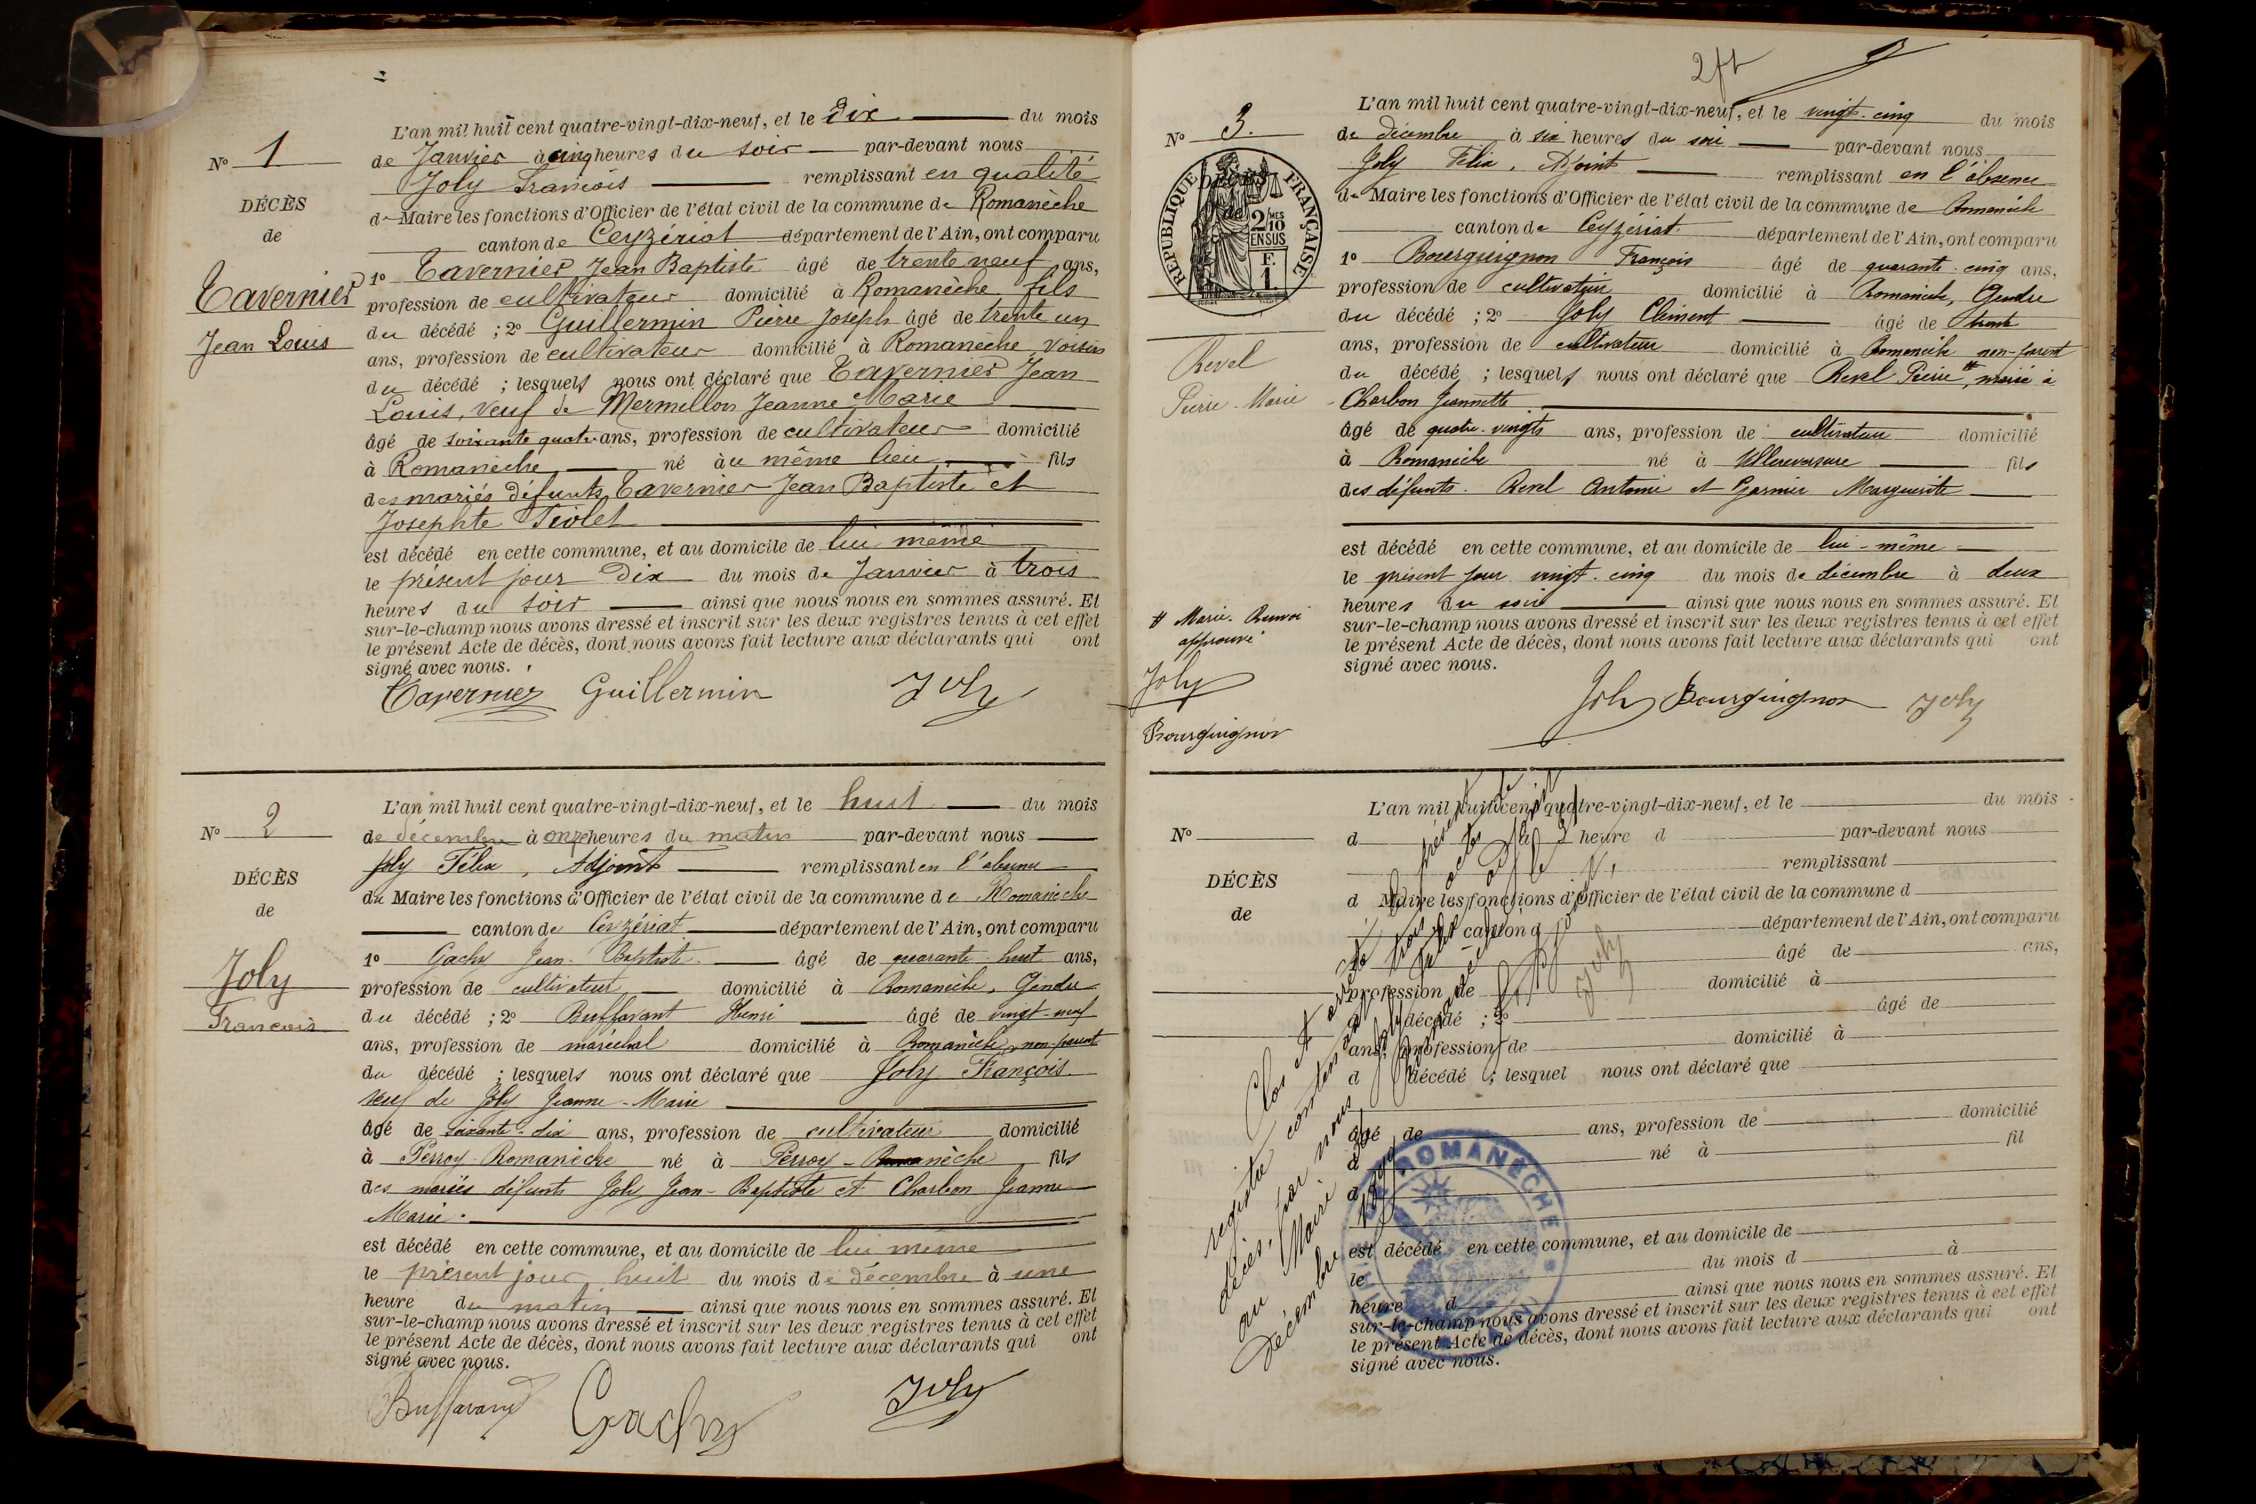 N° 1
DÉCÈS
de
Tavernier
Jean Louis
L'an mil huit cent quatre-vingt-dix-neuf, et le Dix du mois
de Janvier à cinq heures du soir par-devant nous
Joly François remplissant en qualité
de Maire les fonctions d'Officier de l'état civil de la commune de Romanèche
canton de Ceyzériat département de l'Ain, ont comparu
1° Tavernier Jean Baptiste âgé de trente neuf ans,
profession de cultivateur domicilié à Romanèche fils
du décédé ; 2° Guillermin Pierre Joseph âgé de trente un
ans, profession de cultivateur domicilié à Romanèche voisin
du décédé ; lesquels nous ont déclaré que Tavernier Jean
Louis, veuf de Mermillon Jeanne Marie
âgé de soixante quatre ans, profession de cultivateur domicilié
à Romanèche né au même lieu fils
des mariés défunts Tavernier Jean Baptiste et
Josephte
est décédé en cette commune, et au domicile de lui même
le présent jour Dix du mois de Janvier à trois
heures du soir ainsi que nous nous en sommes assuré. Et
sur-le-champ nous avons dressé et inscrit sur les deux registres tenus à cet effet
le présent Acte de décès, dont nous avons fait lecture aux déclarants qui ont
signé avec nous.
Tavernier Guillermin Joly
N° 2
DÉCÈS
de
Joly
François
L'an mil huit cent quatre-vingt-dix-neuf, et le huit du mois
de décembre à onze heures du matin par-devant nous
Joly Félix, Adjoint remplissant en l'absence
du Maire les fonctions d'Officier de l'état civil de la commune de Romanèche
canton de Ceyzériat département de l'Ain, ont comparu
1° Gachy Jean-Baptiste âgé de quarante-huit ans,
profession de cultivateur domicilié à Romanèche, Gendre
du décédé ; 2° Buffavant Henri âgé de vingt-neuf
ans, profession de maréchal domicilié à Romanèche, non-parent
du décédé ; lesquels nous ont déclaré que Joly François
veuf de Joly Jeanne-Marie
âgé de soixante-dix ans, profession de cultivateur domicilié
à Perroy-Romanèche né à Perroy-Romanèche fils
des mariés défunts Joly Jean-Baptiste et Charbon Jeanne
Marie.
est décédé en cette commune, et au domicile de lui même
le présent jour huit du mois de décembre à une
heure du matin ainsi que nous nous en sommes assuré. Et
sur-le-champ nous avons dressé et inscrit sur les deux registres tenus à cet effet
le présent Acte de décès, dont nous avons fait lecture aux déclarants qui ont
signé avec nous.
Buffavand Gachy Joly
N° 3.
RÉPUBLIQUE FRANÇAISE
DÉCÈS
de
2/10
EN SUS
F.
1
Revel
Pierre-Marie
L'an mil huit cent quatre-vingt-dix-neuf, et le vingt-cinq du mois
de décembre à six heures du soir par-devant nous
Joly Félix, Adjoint remplissant en l'absence
de Maire les fonctions d'Officier de l'état civil de la commune de Romanèche
canton de Ceyzériat département de l'Ain, ont comparu
1° Bourguignon François âgé de quarante-cinq ans,
profession de cultivateur domicilié à Romanèche, Gendre
du décédé ; 2° Joly Clément âgé de trente
ans, profession de cultivateur domicilié à Romanèche non-parent
du décédé ; lesquels nous ont déclaré que Revel Pierre #, marié à
Charbon Jeannette
âgé de quatre-vingts ans, profession de cultivateur domicilié
à Romanèche né à Villereversure fils
des défunts Revel Antoine et Garnier Marguerite
est décédé en cette commune, et au domicile de lui-même
le présent jour vingt-cinq du mois de décembre à deux
heures du soir ainsi que nous nous en sommes assuré. Et
sur-le-champ nous avons dressé et inscrit sur les deux registres tenus à cet effet
le présent Acte de décès, dont nous avons fait lecture aux déclarants qui ont
signé avec nous.
# Marie. Renvoi
approuvé
Joly
Bourguignon
Joly Bourguignon Joly
N°
DÉCÈS
de
L'an mil huit cent quatre-vingt-dix-neuf, et le du mois
d heure d par-devant nous
remplissant
d Maire les fonctions d'Officier de l'état civil de la commune d
canton d département de l'Ain, ont comparu
âgé de ans,
profession de domicilié à
décédé ; 2° âgé de
ans, profession de domicilié à
d décédé ; lesquel nous ont déclaré que
âgé de ans, profession de domicilié
à né à fil
d
est décédé en cette commune, et au domicile de
le du mois d à
heure d ainsi que nous nous en sommes assuré. Et
sur-le-champ nous avons dressé et inscrit sur les deux registres tenus à cet effet
le présent Acte de décès, dont nous avons fait lecture aux déclarants qui ont
signé avec nous.
Clos et arrêté le présent
registre contenant trois actes de
décès, par nous Joly Félix
au Maire
décembre 1899
Joly
ROMANÈCHE